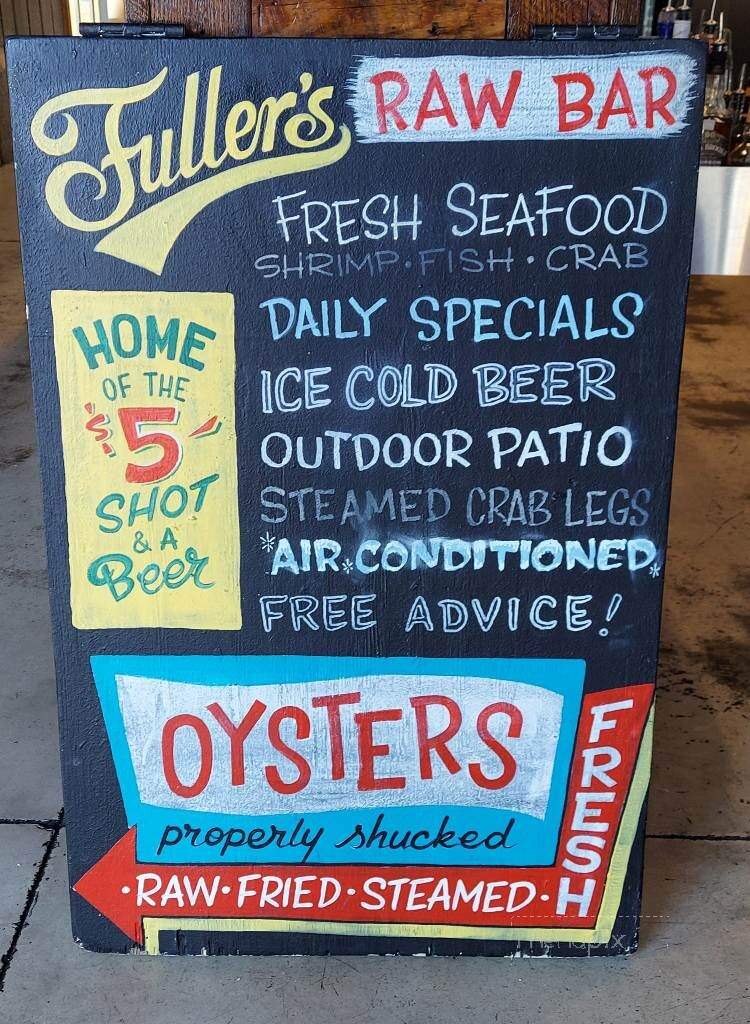 Fuller's
RAW BAR
FRESH SEAFOOD
SHRIMP · FISH · CRAB
DAILY SPECIALS
ICE COLD BEER
OUTDOOR PATIO
STEAMED CRAB LEGS
*AIR*CONDITIONED*
FREE ADVICE!
HOME
OF THE
$5
SHOT
& A
Beer
OYSTERS
properly shucked
FRESH
·RAW·FRIED·STEAMED·
menupix